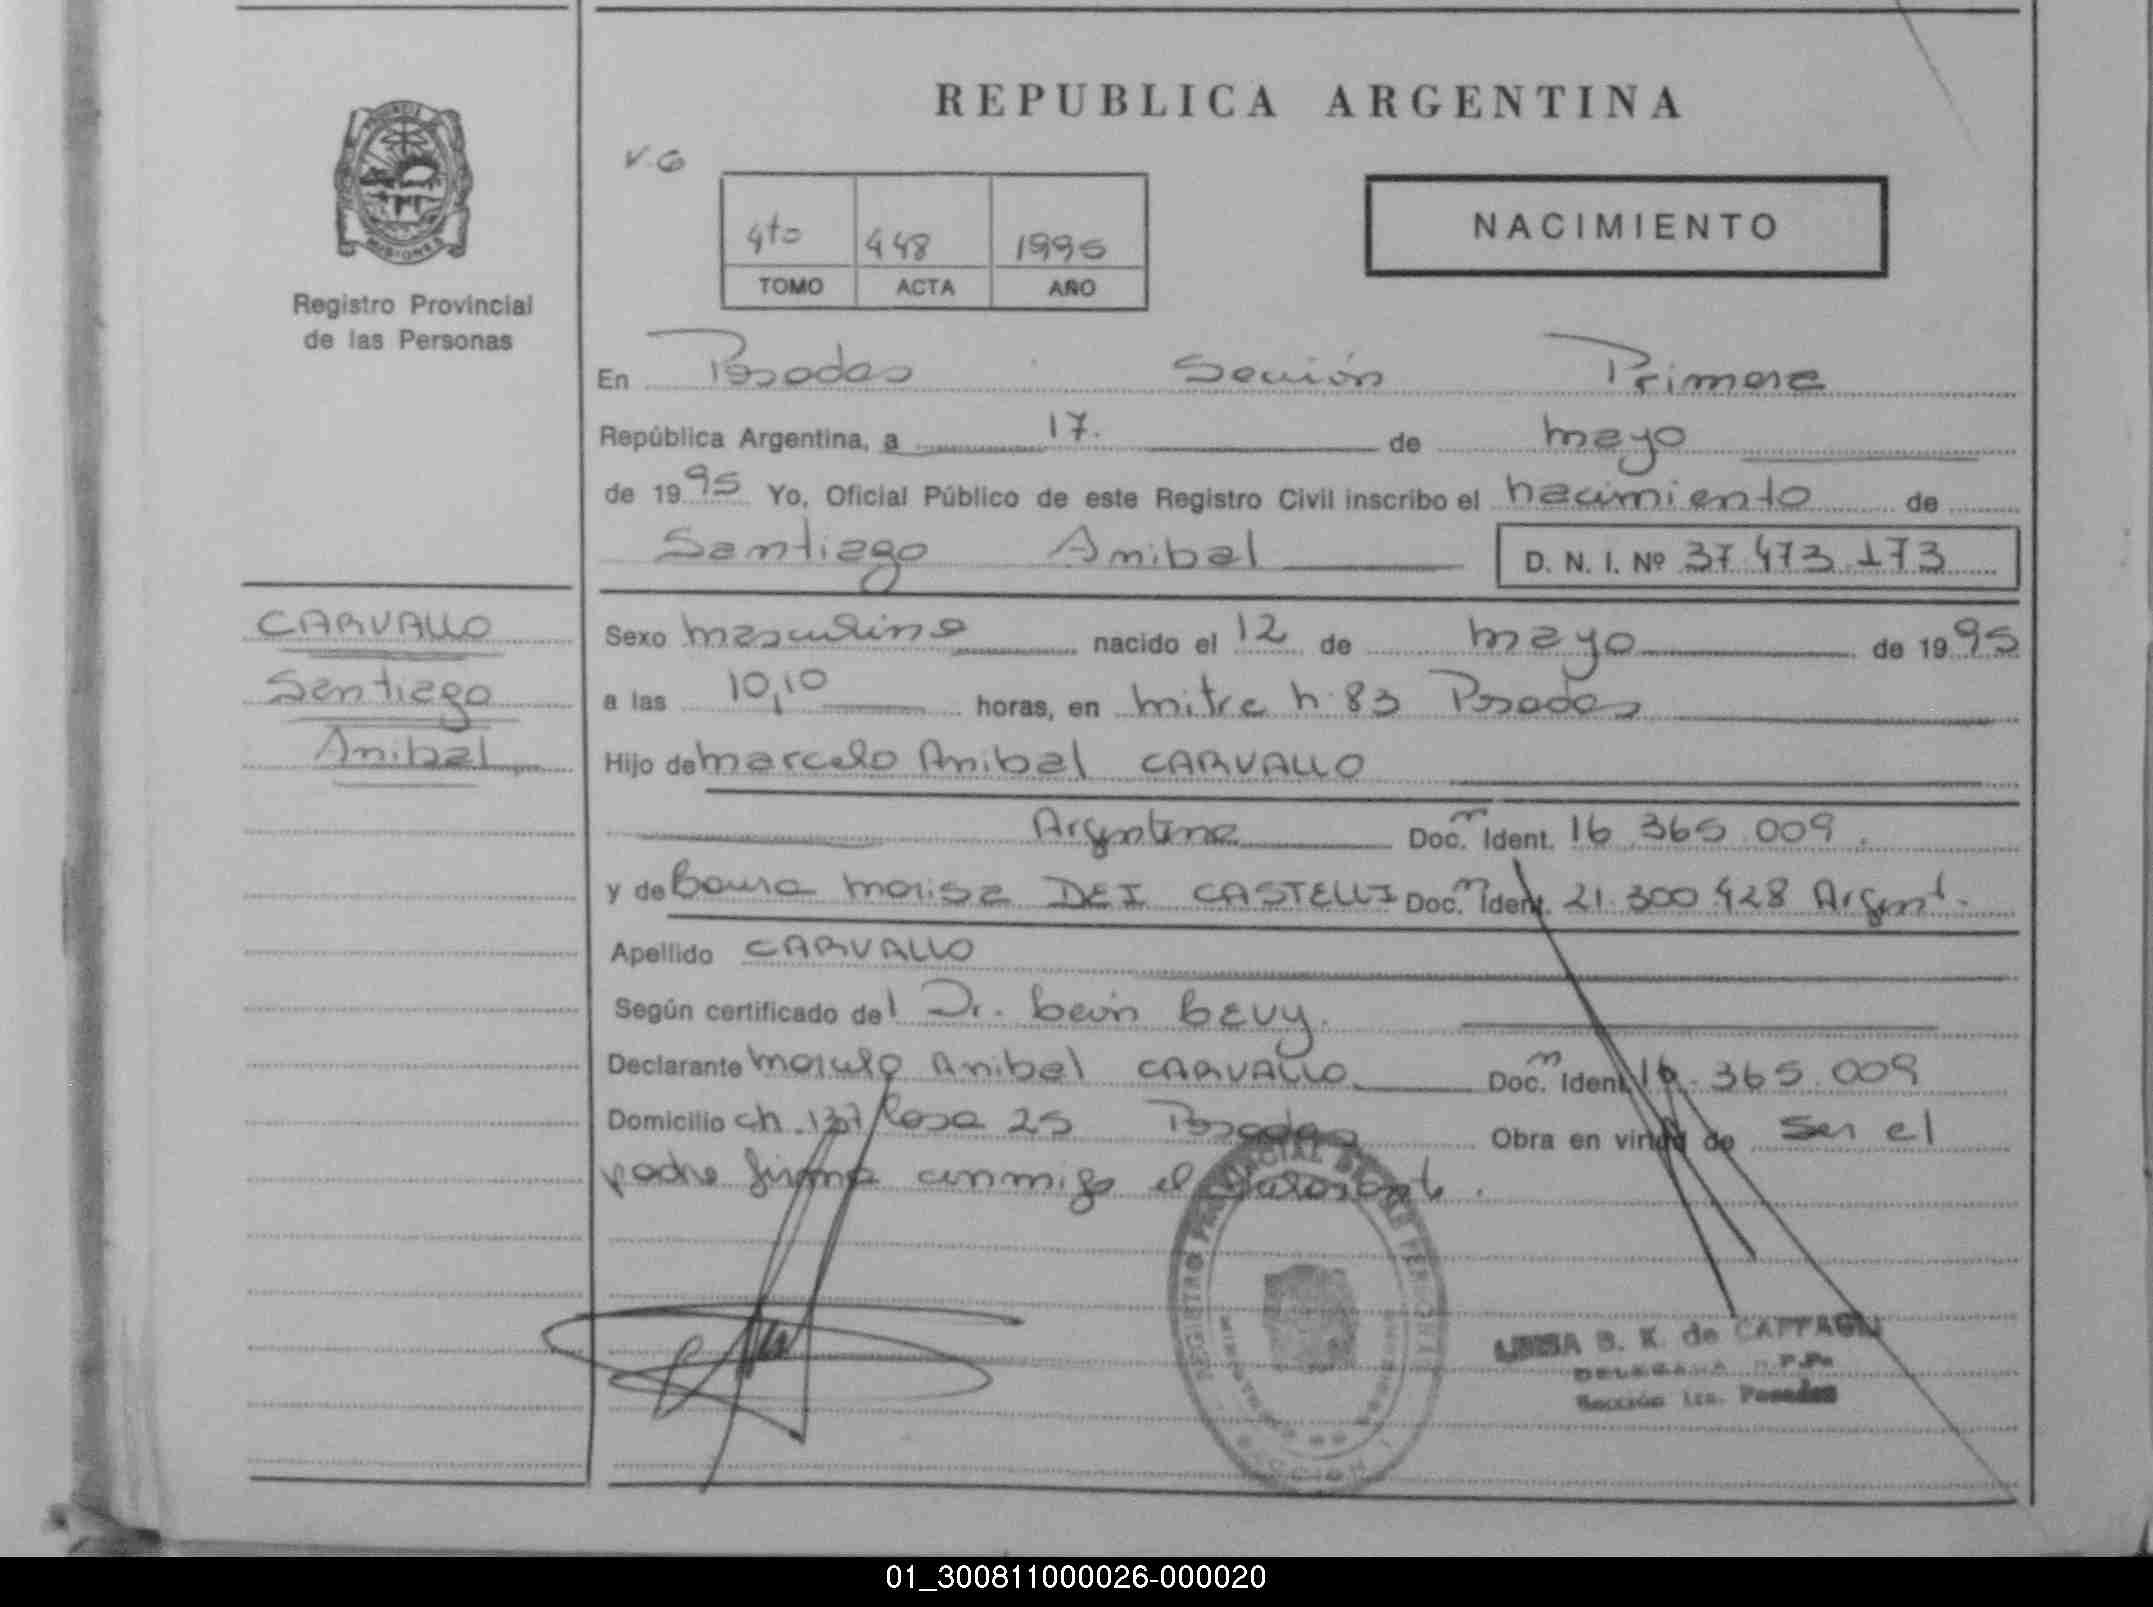 REPUBLICA ARGENTINA
V.G
4to 448 1995
TOMO ACTA AÑO
NACIMIENTO
MISIONES
Registro Provincial
de las Personas
En Posadas Sección Primera
República Argentina, a 17. de mayo
de 1995 Yo, Oficial Público de este Registro Civil inscribo el nacimiento de
Santiago Anibal D. N. I. Nº 37.473.173
CARVALLO
Santiago
Anibal
Sexo masculino nacido el 12 de mayo de 1995
a las 10,10 horas, en mitre n: 83 Posadas
Hijo de marcelo Anibal CARVALLO
Argentina Doc. Ident. 16.365.009.
y de Laura DEI CASTELLI Doc. Ident. 21.300.428 Argent.
Apellido CARVALLO
Según certificado del Dr. León
Declarante Marcelo Anibal CARVALLO Doc. Ident. 16.365.009
Domicilio ch. 137 Casa 25 Posadas Obra en virtud de ser el
padre firma conmigo el declarante.
REGISTRO PROVINCIAL DE LAS PERSONAS
SECCION 1
B. K. de
DELEGADA R.P.P.
Sección 1ra. Posadas
01_300811000026-000020